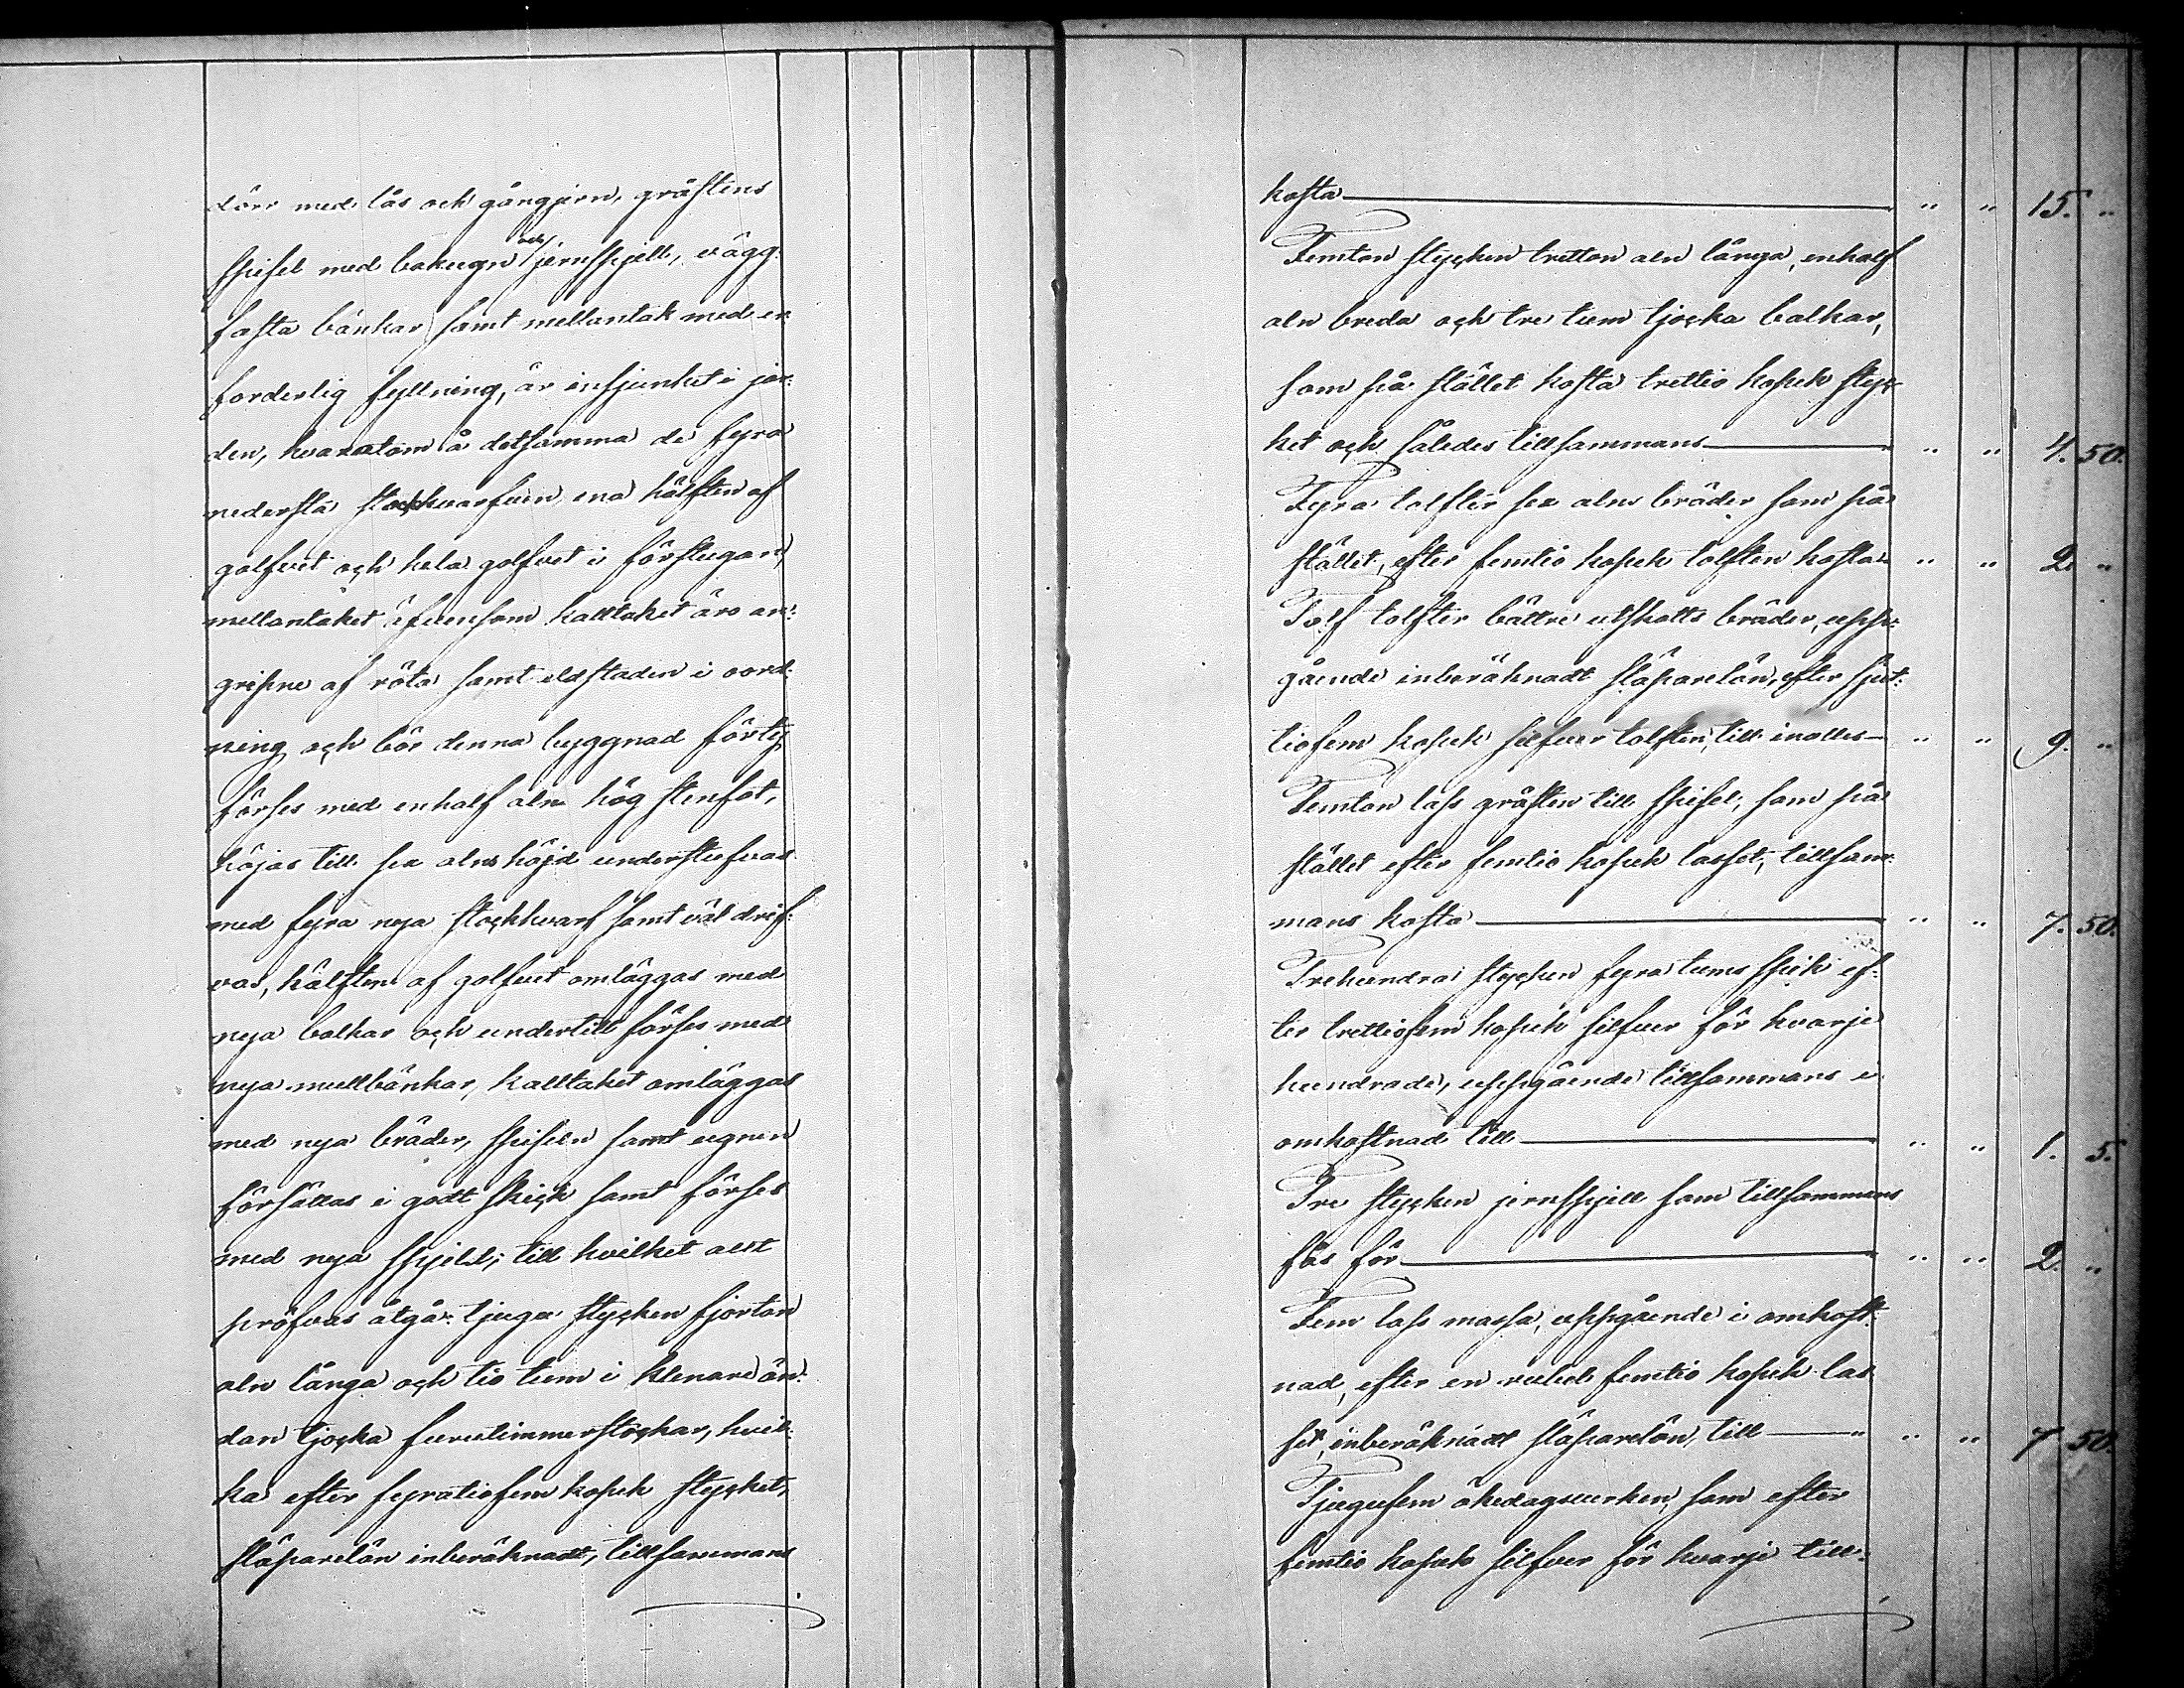 dörr med lås och gångjern, gråstens
spisel med bakugn och jernspjell, vägg-
fasta bänkar samt mellantak med er-
forderlig fyllning, är insjunket i jor-
den, hvarutom å detsamma de fyra
nedersta stockhvarfven, ena hälften af
golfvet och hela golfvet i förstugan,
mellantaket äfvensom kalltaket äro an-
gripne af röta samt eldstaden i oord-
ning och bör denna byggnad förty
förses med enhalf aln hög stenfot,
höjas till sex alns höjd understufvas
med fyra nya stockhvarf samt väl drif-
vas, hälften af golfvet omläggas med
nya balkar och undertill förses med
nya mullbänkar, kalltaket omläggas
med nya bräder, spiseln samt ugnen
försättas i godt skick samt förses
med nya spjeld; till hvilket allt
pröfvas åtgå: tjugu stycken fjorton
aln långa och tio tum i klenare än-
dan tjocka furutimmerstockar, hvil-
ka efter fyratiofem kopek stycket,
släparelön inberäknadt, tillsammans
kosta " " 15. "
Femton stycken tretton aln långa, enhalf
aln breda och tre tum tjocka balkar,
som på stället kosta trettio kopek styc-
ket och således tillsammans " " 4. 50.
Fyra tolfter sex alns bräder som på
stället, efter femtio kopek tolften kosta " " 2. "
Tolf tolfter bättre utskotts bräder, upp-
gående inberäknadt släparelön, efter sjut-
tiofem kopek silfver tolften, till inalles " " 9. "
Femton lass gråsten till spisel, som på
stället efter femtio kopek lasset, tillsam-
mans kosta " " 7. 50.
Trehundra stycken fyra tums spik ef-
ter trettiofem kopek silfver för hvarje
hundrade, uppgående tillsammans i
omkostnad till " " 1. 5.
Tre stycken jernspjell som tillsammans
fås för " " 2. "
Fem lass massa, uppgående i omkost-
nad, efter en rubel femtio kopek las-
set, inberäknadt släparelön, till " " 7 50.
Tjugufem ökedagsverken, som efter
femtio kopek silfver för hvarje till-